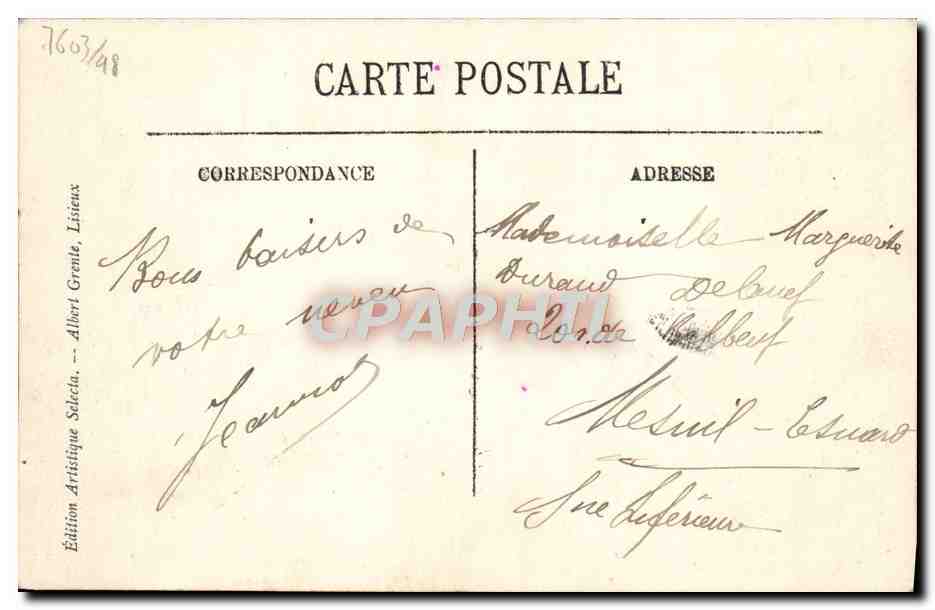 7603/48
CARTE POSTALE
CORRESPONDANCE
Bons baisers de
votre neveu
Jeannot
ADRESSE
Mademoiselle Marguerite
Durand
20 r. de
Mesnil-Esnard
Sne Inférieure
Édition Artistique Selecta. -- Albert Grente, Lisieux
CPAPHIL